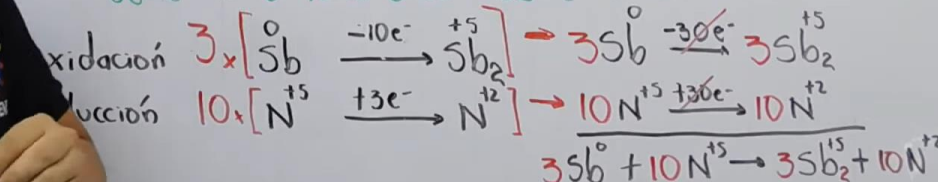 xidación 3x[Sb⁰ -10e⁻→ Sb₂⁺⁵] → 3Sb⁰ -30e⁻→ 3Sb₂⁺⁵
ucción 10x[N⁺⁵ +3e⁻→ N⁺²] → 10N⁺⁵ +30e⁻→ 10N⁺²
3Sb⁰ + 10N⁺⁵ → 3Sb₂⁺⁵ + 10N⁺²